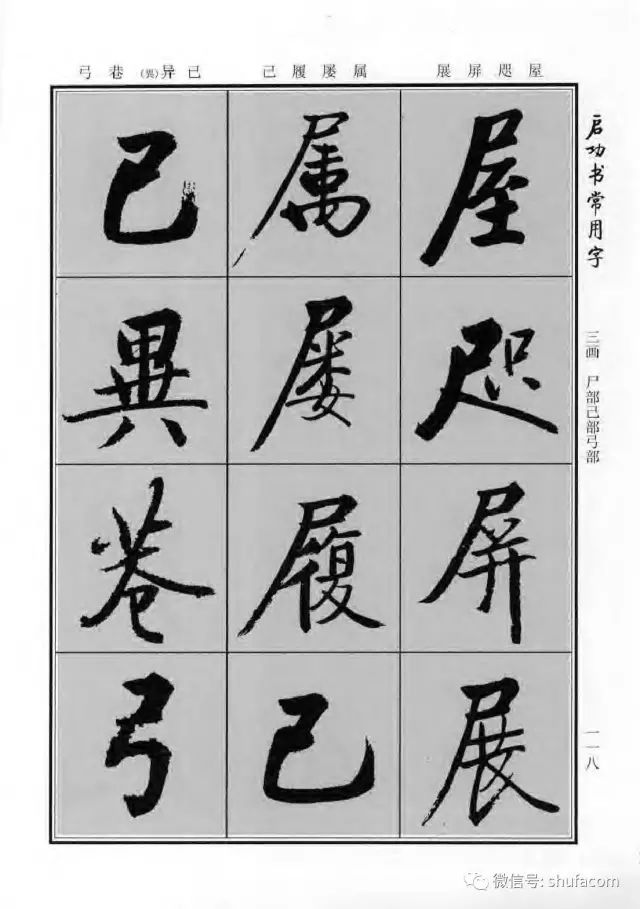 弓巷(異)异已 己履屡属 展屏咫屋
启功书常用字
三画 尸部己部弓部
一一八
屋
咫
屏
展
属
屡
履
己
已
異
巷
弓
微信号: shufacom